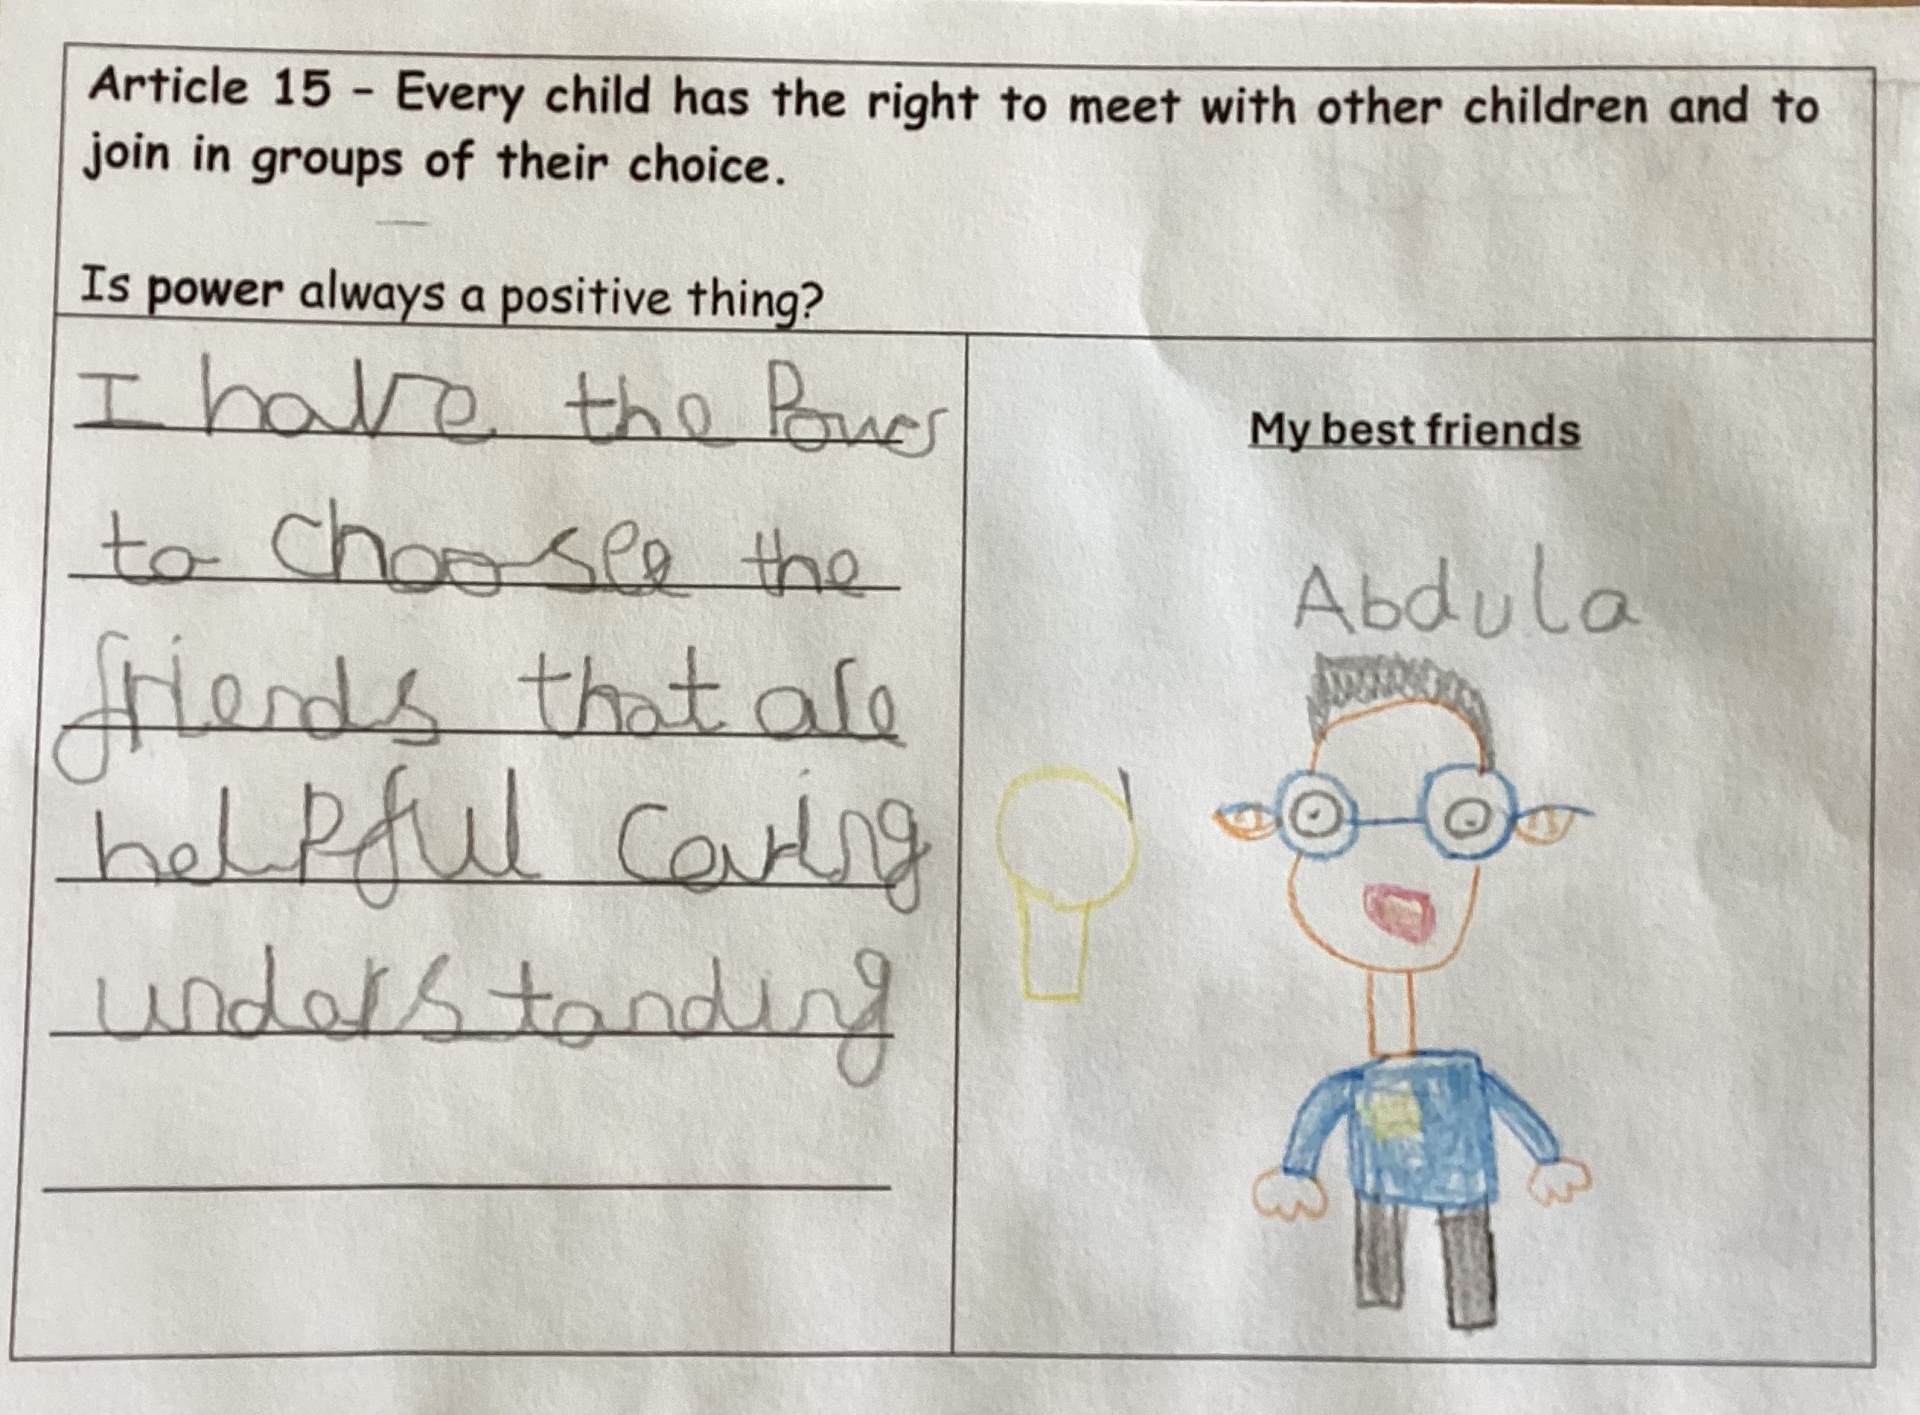 Article 15 - Every child has the right to meet with other children and to
join in groups of their choice.
Is power always a positive thing?
I have the Power
to Choosee the
friends that are
helpful Caring
understanding
My best friends
Abdula